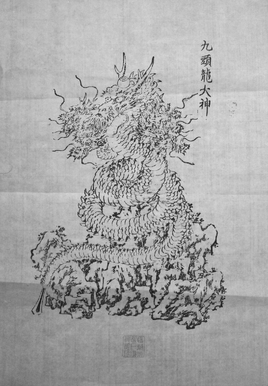 九頭龍大神